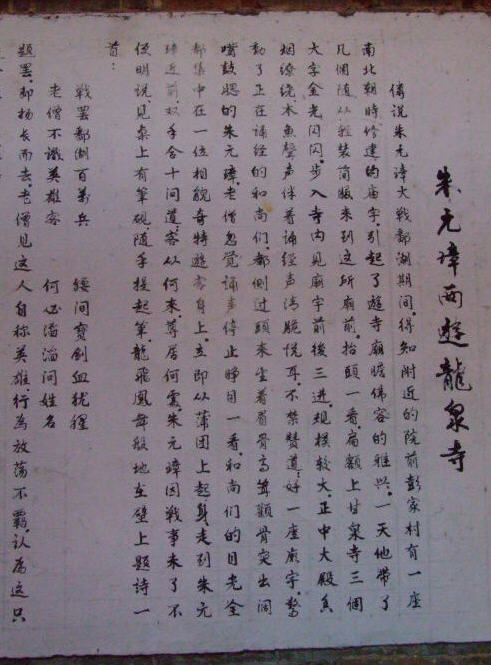 朱元璋两遊龍泉寺
傳説朱元璋大戰鄱湖期间,得知附近的院前彭家村有一座
南北朝時修建的庙宇,引起了遊寺廟瞻佛容的雅兴。一天他帶了
几個随从,轻装简服来到这所廟前,抬頭一看,扁額上甘泉寺三個
大字金光闪闪。步入寺内見庙宇前後三进,规模较大,正中大殿负
烟缭绕,木魚聲声伴着誦经声清脆悦耳,不禁赞道:好一座廟宇。惊
動了正在誦经的和尚们,都侧过頭来坐着眉骨高耸颧骨突出阔
嘴鼓腮的朱元璋。老僧忽觉誦声停止睁目一看,和尚们的目光全
都集中在一位相貌奇特遊客身上,立即从蒲团上起身走到朱元
璋近前,双手合十问道:客从何来,尊居何雲。朱元璋因战事未了不
便明说,见桌上有筆砚,随手提起筆,龍飛鳳舞般地在壁上题诗一
首:
戰罢鄱湖百萬兵 腰间寶劍血犹腥
老僧不識英雄客 何必滔滔问姓名
题罢,即扬长而去。老僧見这人自称英雄,行為放荡不覊,认為这只